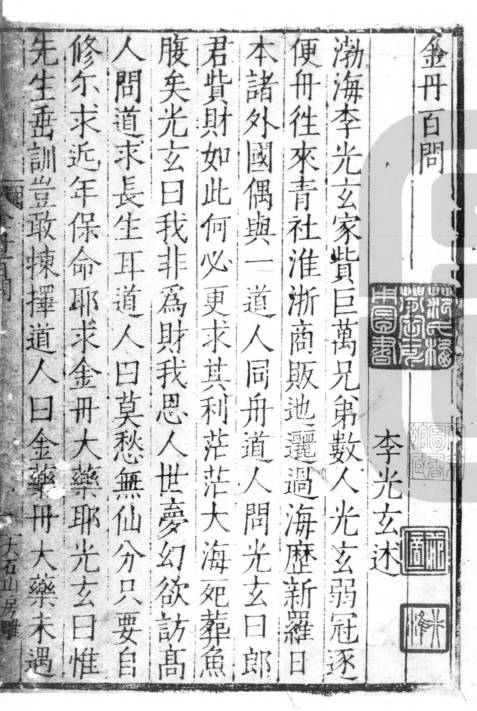 金丹百問
李光玄述
渤海李光玄家貲巨萬兄弟數人光玄弱冠逐
便舟徃來青社淮浙商販迆邐過海歷新羅日
本諸外國偶與一道人同舟道人問光玄曰郎
君貲財如此何必更求其利茫茫大海死葬魚
腹矣光玄曰我非爲財我思人世夢幻欲訪髙
人問道求長生耳道人曰莫愁無仙分只要自
修尓求近年保命耶求金丹大藥耶光玄曰惟
先生垂訓豈敢揀擇道人曰金藥丹大藥未遇
大石山房雕